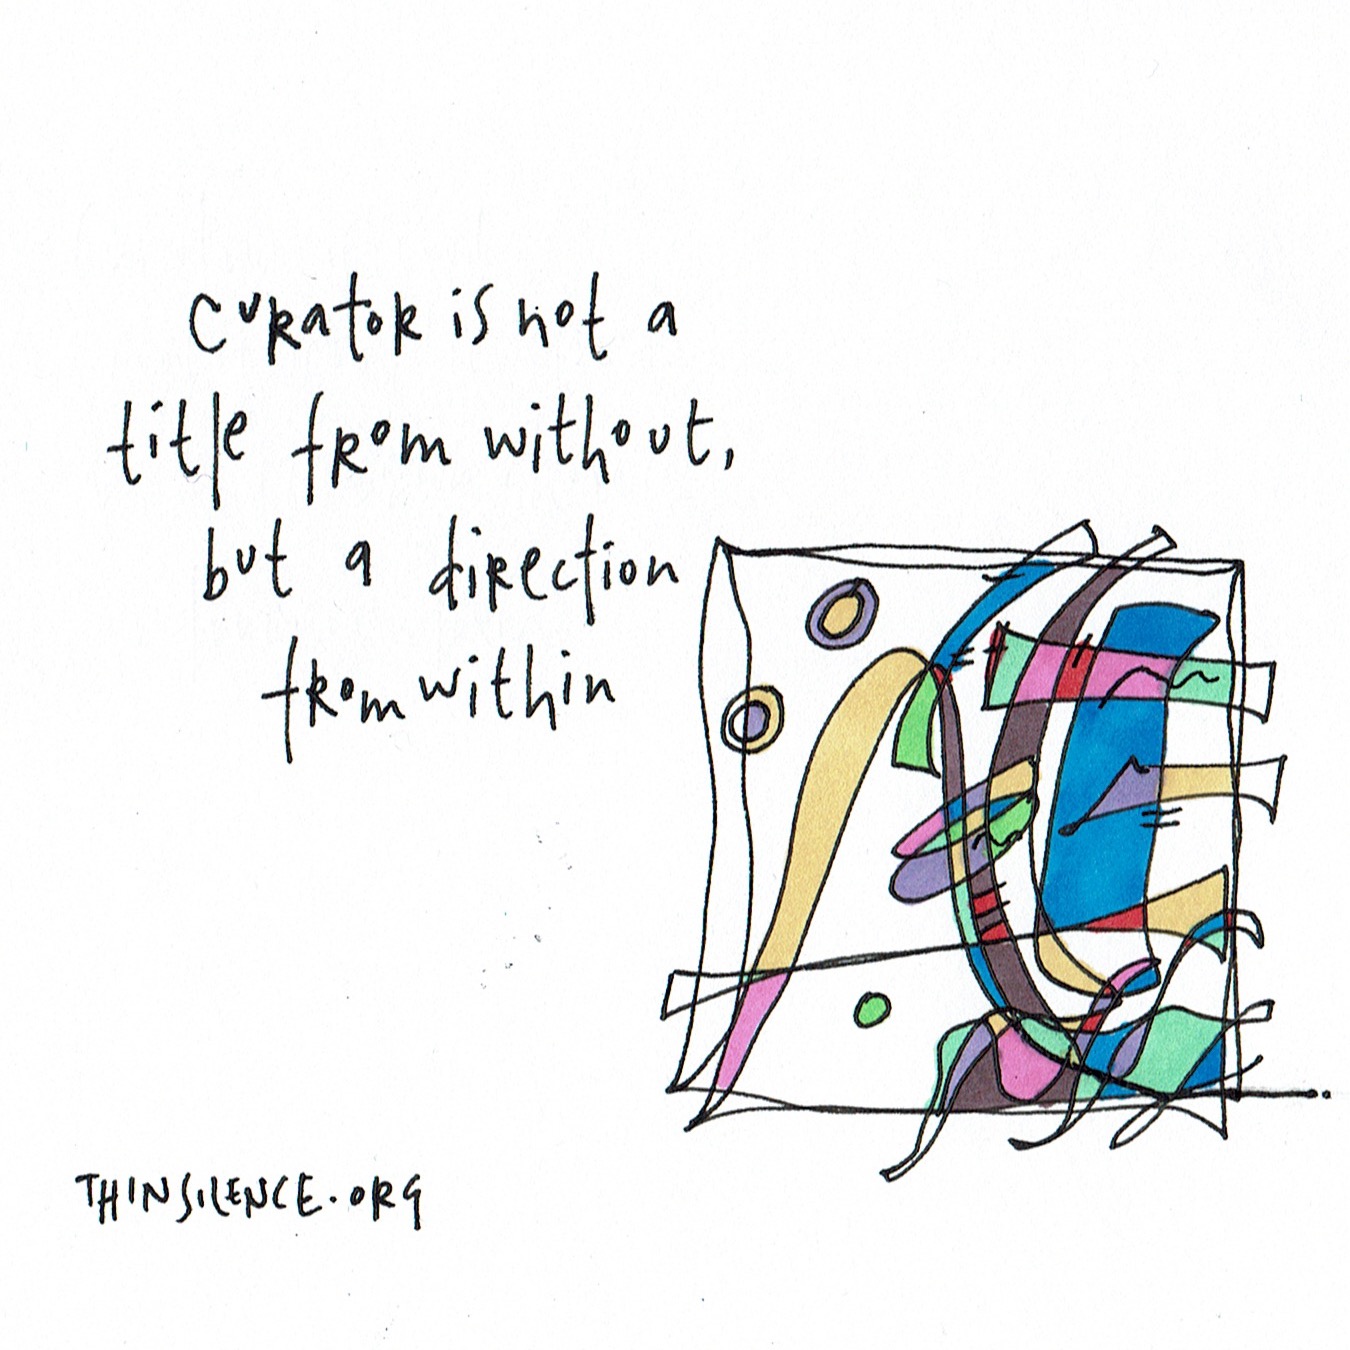 curator is not a
title from without,
but a direction
from within
THINSILENCE.ORG